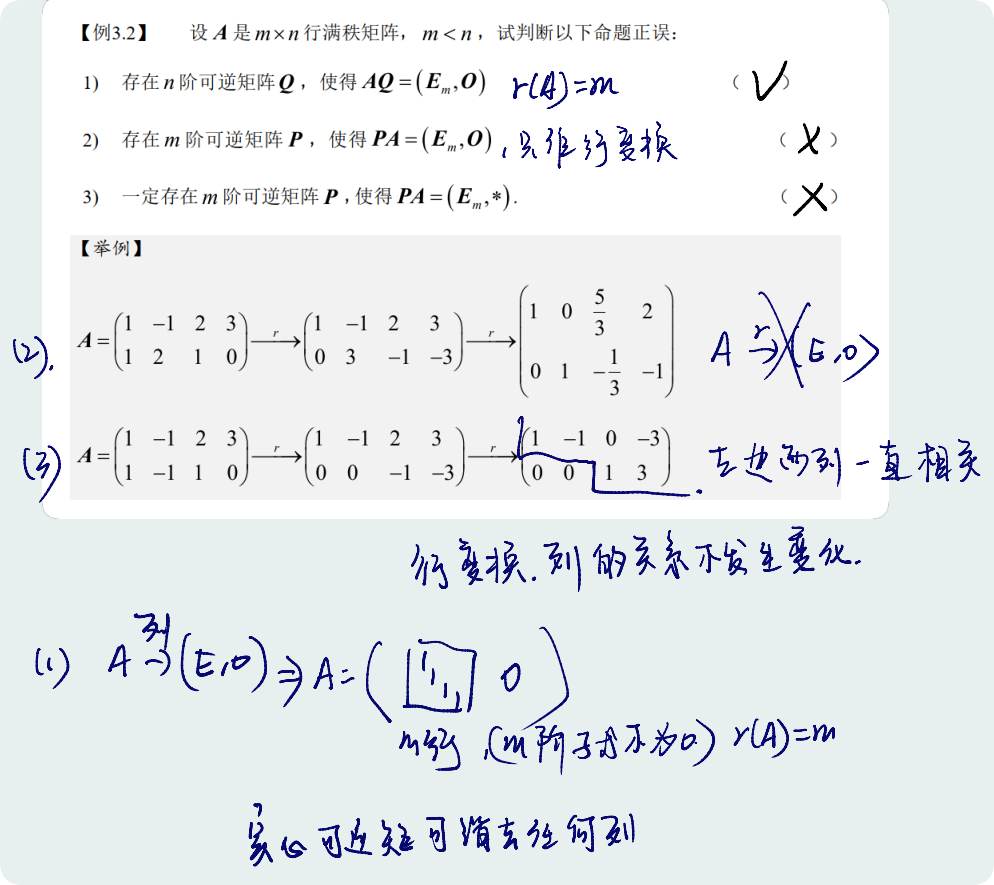 【例3.2】 设 A 是 m×n 行满秩矩阵，m<n，试判断以下命题正误：
1) 存在 n 阶可逆矩阵 Q，使得 AQ=(Eₘ,O) r(A)=m （√）
2) 存在 m 阶可逆矩阵 P，使得 PA=(Eₘ,O)，只能行变换 （×）
3) 一定存在 m 阶可逆矩阵 P，使得 PA=(Eₘ,*). （×）
【举例】
(2). A=(1 -1 2 3; 1 2 1 0) →r (1 -1 2 3; 0 3 -1 -3) →r (1 0 5/3 2; 0 1 -1/3 -1) A →r (E,0)
(3) A=(1 -1 2 3; 1 -1 1 0) →r (1 -1 2 3; 0 0 -1 -3) →r (1 -1 0 -3; 0 0 1 3). 左边两列一直相关
行变换.列的关系不发生变化.
(1) A →列 (E,0) ⇒ A=( 1 1 1 1 0 )
m行,(m阶子式不为0) r(A)=m
可逆矩可消去任何列